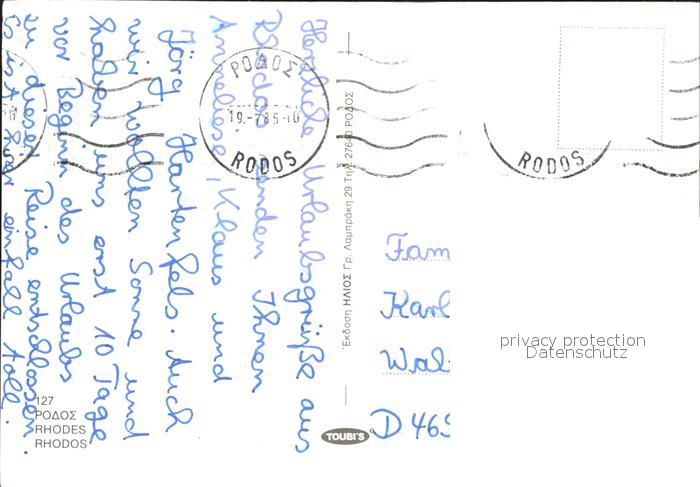 Herzliche Urlaubsgrüße aus
Rhodos senden Ihnen
Anneliese, Klaus und
Jörg Hartenfels. Auch
wir wollten Sonne und
haben uns erst 10 Tage
vor Beginn des Urlaubs
zu dieser Reise entschlossen.
Es ist hier einfall toll.
ΡΟΔΟΣ
19.-7.85-10
RODOS
RODOS
Έκδοση ΗΛΙΟΣ Γρ. Λαμπράκη 29 Τηλ. 27640 ΡΟΔΟΣ
Fam
Karl
Wal
D 465
privacy protection
Datenschutz
127
ΡΟΔΟΣ
RHODES
RHODOS
TOUBI'S